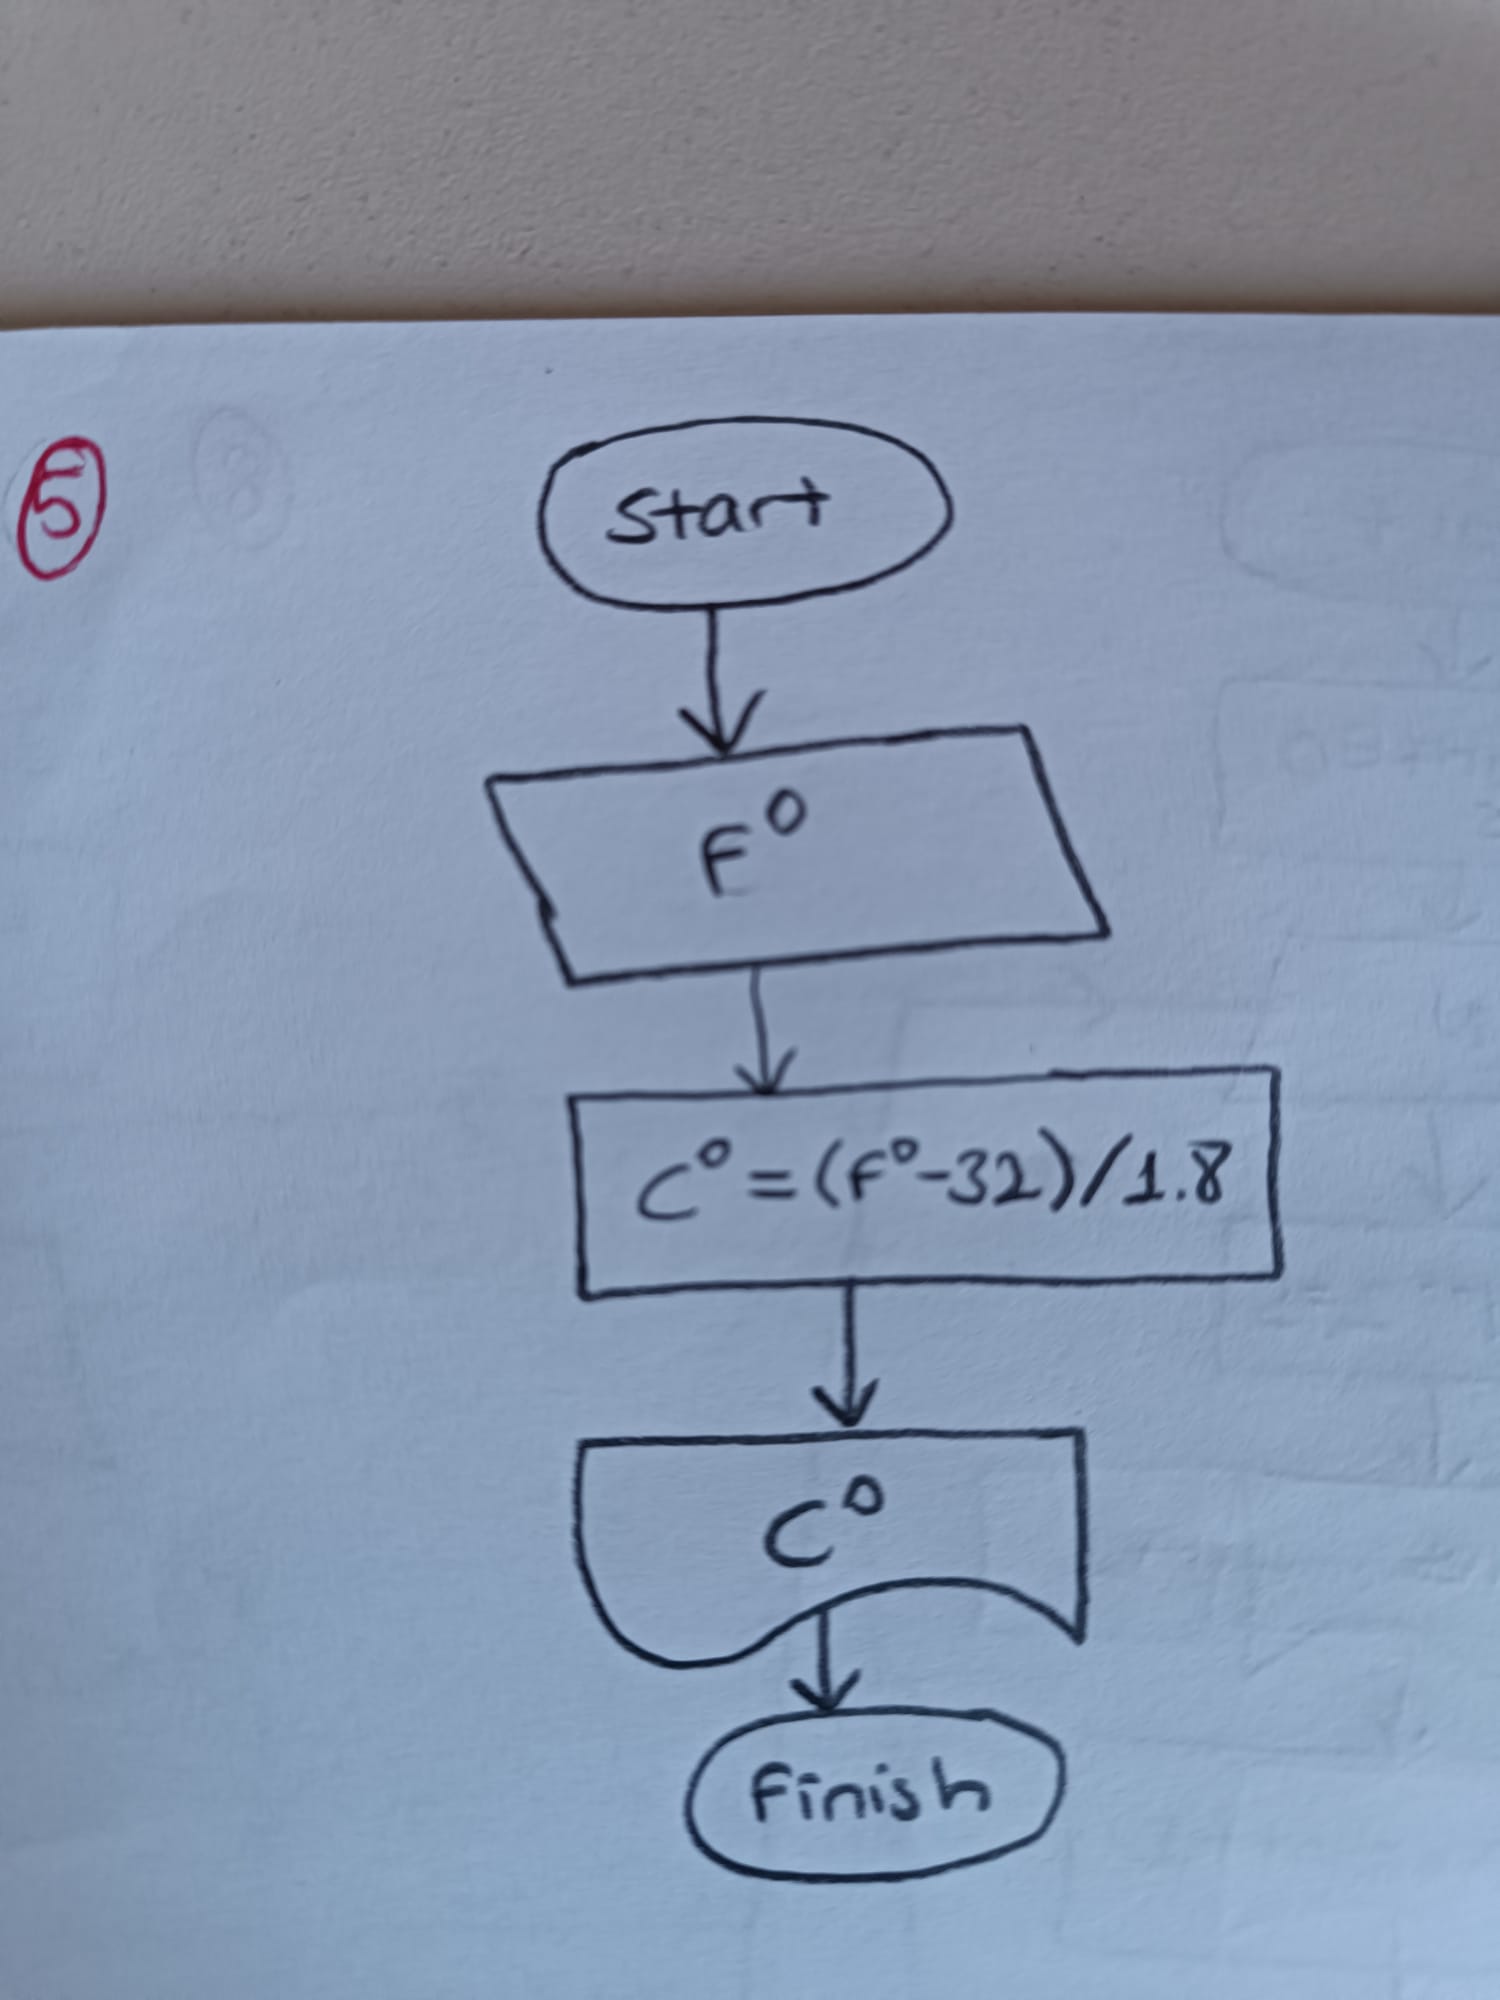 5
Start
F°
C° = (F° - 32) / 1.8
C°
Finish